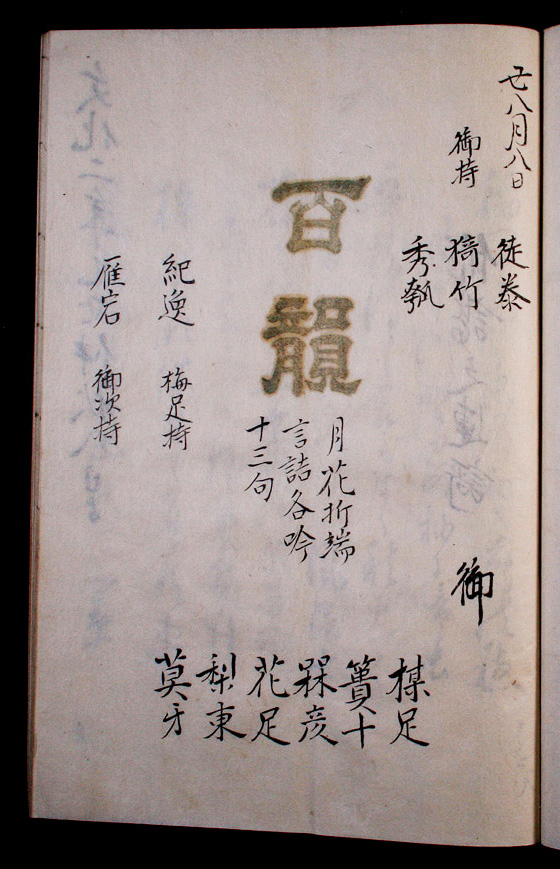 廿八月八日
徒泰
御持
猗竹
秀瓠
百韻
月花折端
言詰各吟
十三句
紀逸
梅足持
雁宕
御次持
御
楳足
簣十
槑彦
花足
梨東
莫牙